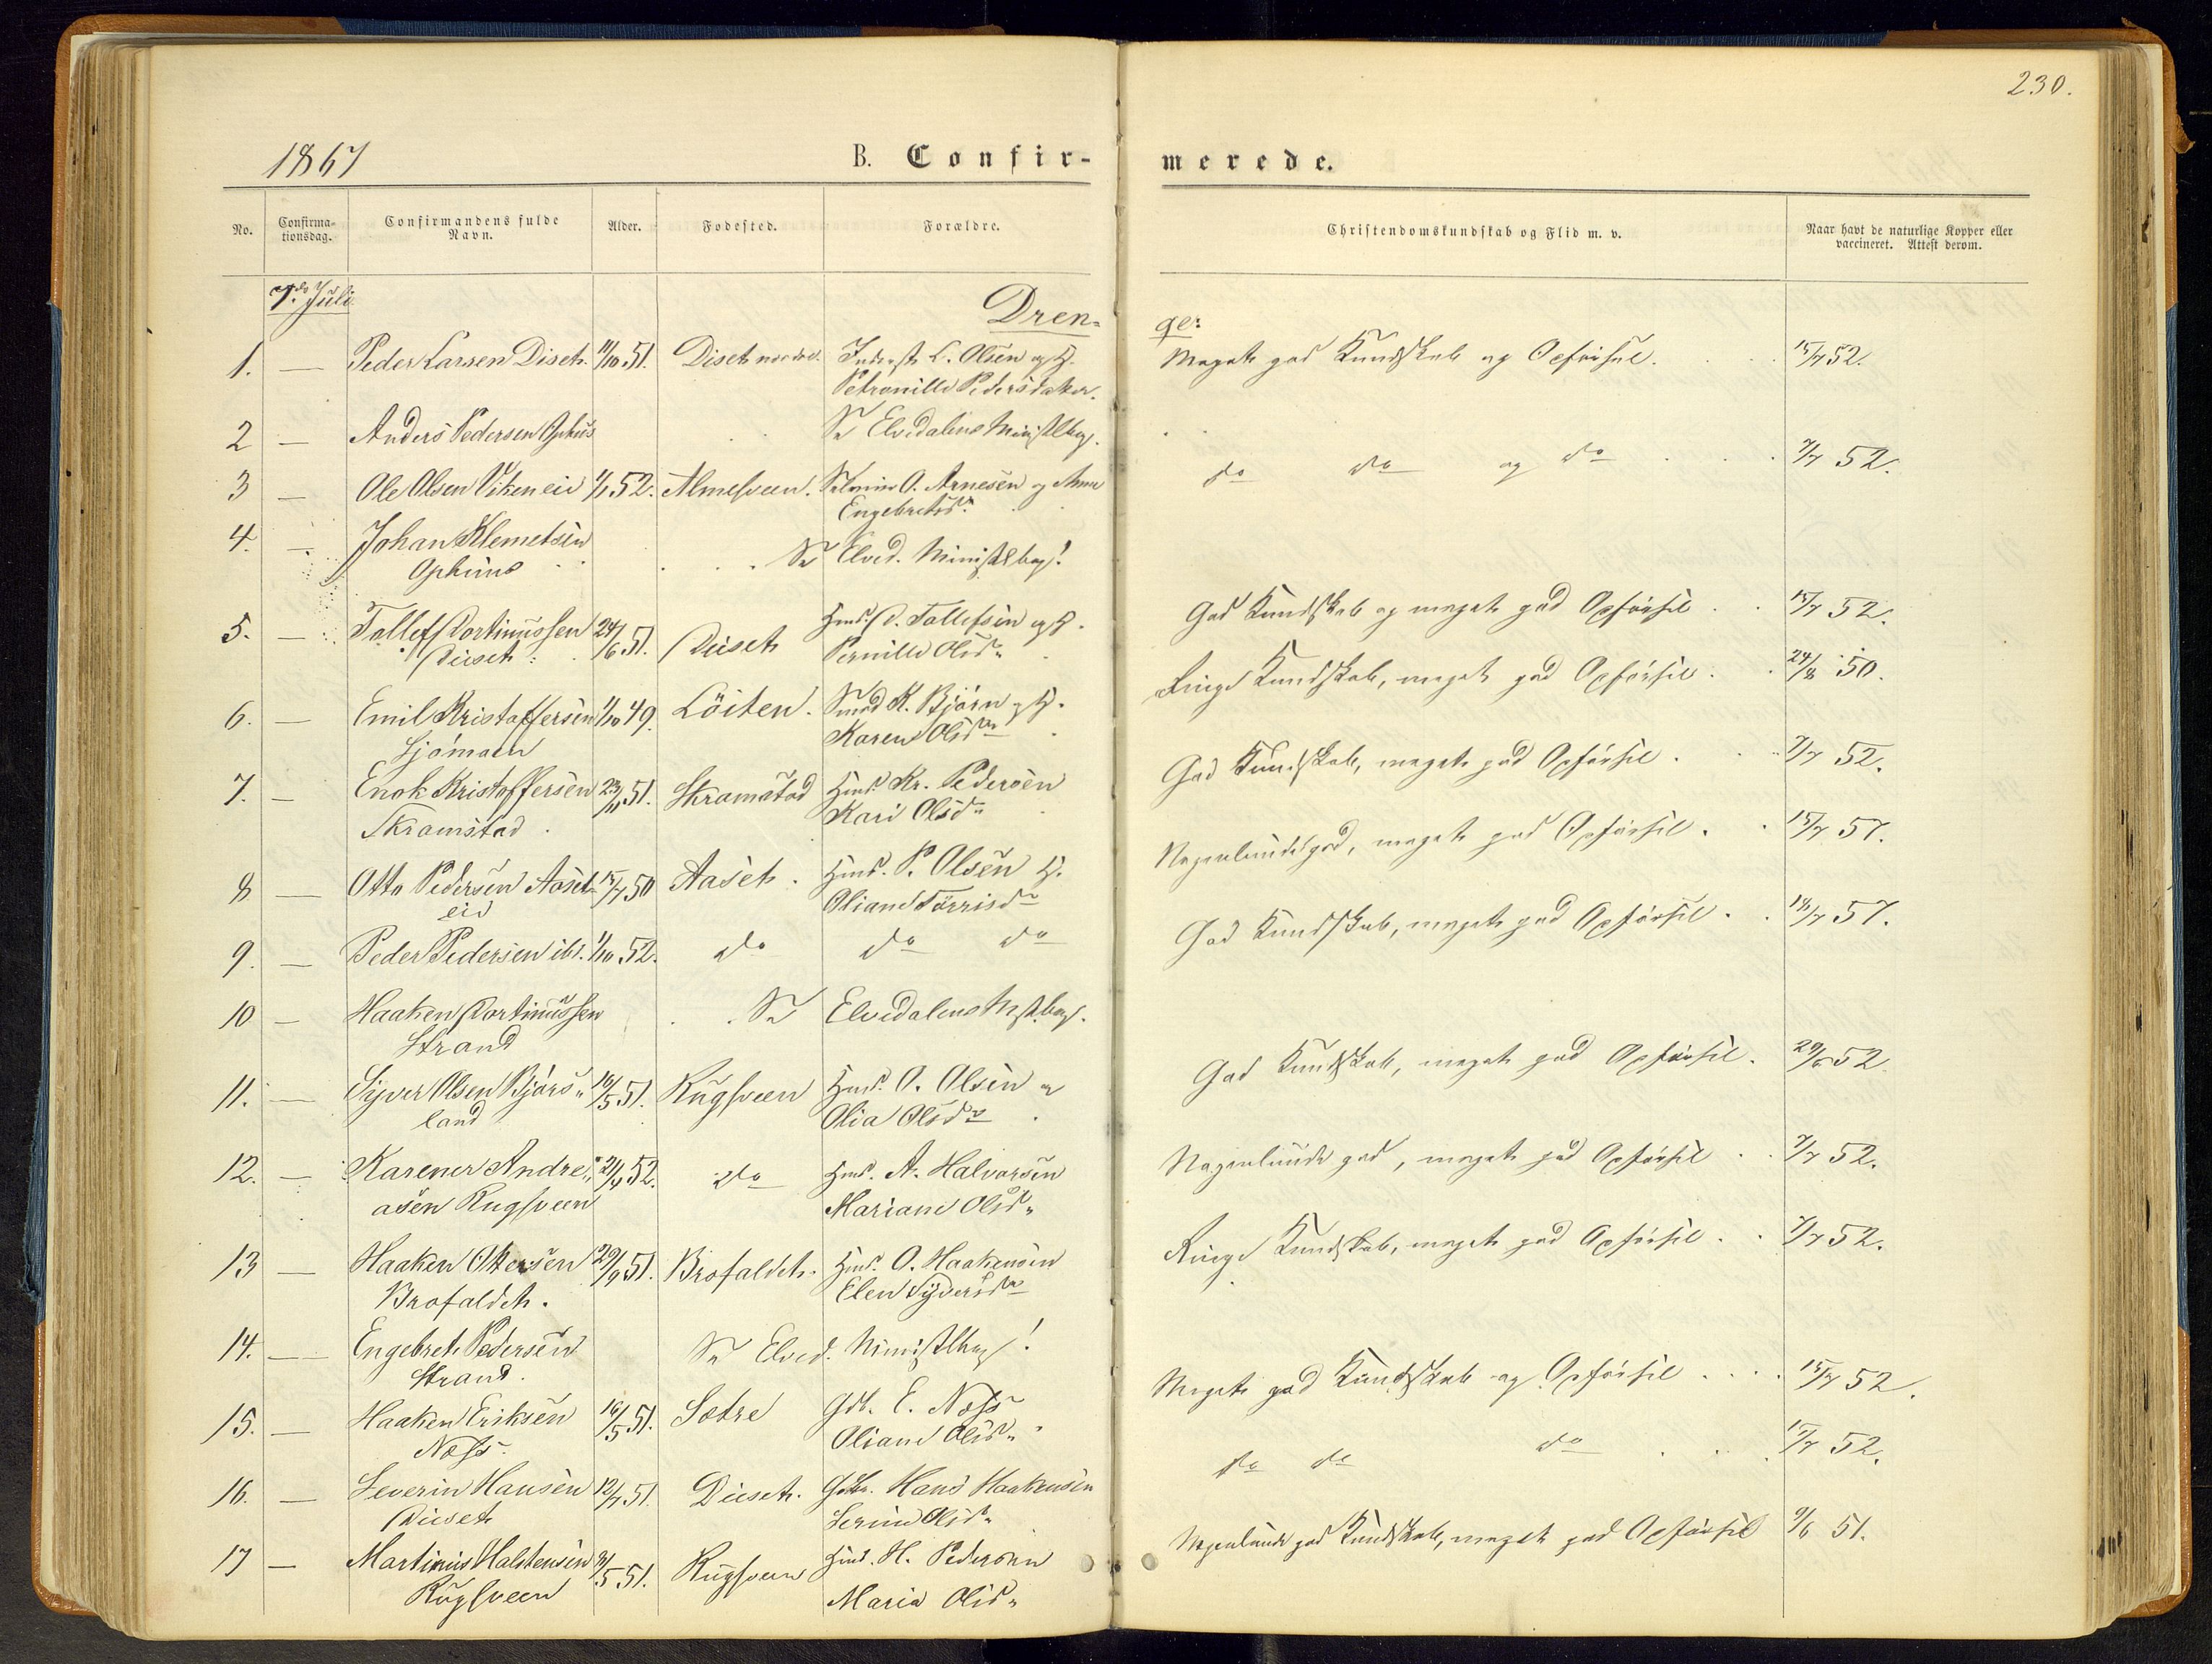 230.
1867 B. Confir- merede.
No. Confirma- tionsdag. Confirmandens fulde Navn. Alder. Fødested. Forældre. Christendomskundskab og Flid m. v. Naar havt de naturlige Kopper eller vaccineret. Attest derom.
7de Juli Dren- ge:
1. — Peder Larsen Diseth. 11/10 51. Diseth nordre. L. Olsen og H. Meget god Kundskab og Opførsel. 15/7 52.
Petronille Pedersdatter.
2 — Anders Pedersen Ophus Se Elvedalens Ministlbog.
3 — Ole Olsen Viken eie 1/1 52. Almesveen. O. Arnesen og Anne do do og do 7/7 52.
Engebretsd.
4. — Johan Klemetsen
Ophuus Se Elved. Ministlbog!
5. — Tollef Portinussen 24/6 51. Diiseth Huusm. P. Tollefsen og H. God Kundskab og meget god Opførsel 15/7 52.
Diiseth Pernille Olsd.
6. — Emil Kristoffersen 1/10 49. Löiten. Smed K. Björn og H. Ringe Kundskab, meget god Opførsel. 24/8 50.
Sjömoen Karen Olsdr
7. — Enok Kristoffersen 23/11 51. Skramstad Huusm. Kr. Pedersen God Kundskab, meget god Opførsel. 7/7 52.
Skramstad Kari Olsd.
8 — Otto Pedersen Aaset 15/7 50 Aaseth. Huusm. P. Olsen H. Nogenlunde god, meget god Opførsel. 15/7 57.
eie Oliane Torrisdr
9. — Peder Pedersen ibd. 1/10 52. do do do God Kundskab, meget god Opførsel. 18/7 57.
10 — Haaken Portinussen Se Elvedalens Mstbog.
Strand
11. — Syver Olsen Bjørs- 16/5 51. Rugsveen Huusm. O. Olsen og God Kundskab, meget god Opførsel. 29/6 52
land Olia Olsdr
12. — Karener Andre- 21/4 52. do Huusm. A. Halvorsen Nogenlunde god, meget god Opførsel 7/7 52.
asen Rugsveen Mariane Olsd.
13 — Haaken Ottersen 29/9 51. Brofaldet. Huusm. O. Haakensen Ringe Kundskab, meget god Opførsel. 7/7 52.
Brofaldet. Elen Syversdr
14. — Engebret Pedersen Se Elved. Ministlbog!
Strand.
15. — Haaken Eriksen 16/5 51. Sætre Gdb. E. Næss Meget god Kundskab og Opførsel 15/7 52.
Næss. Oliane Olsd.
16. — Severin Hansen 12/7 51. Diiseth. Gdbr. Hans Haakensen do do do 15/7 52.
Diiseth Serine Olsd.
17 — Martinius Halstensen 3/5 51. Rugsveen Huusm. H. Pedersen Nogenlunde god Kundskab, meget god Opførsel 9/6 51.
Rugsveen Maria Olsd.